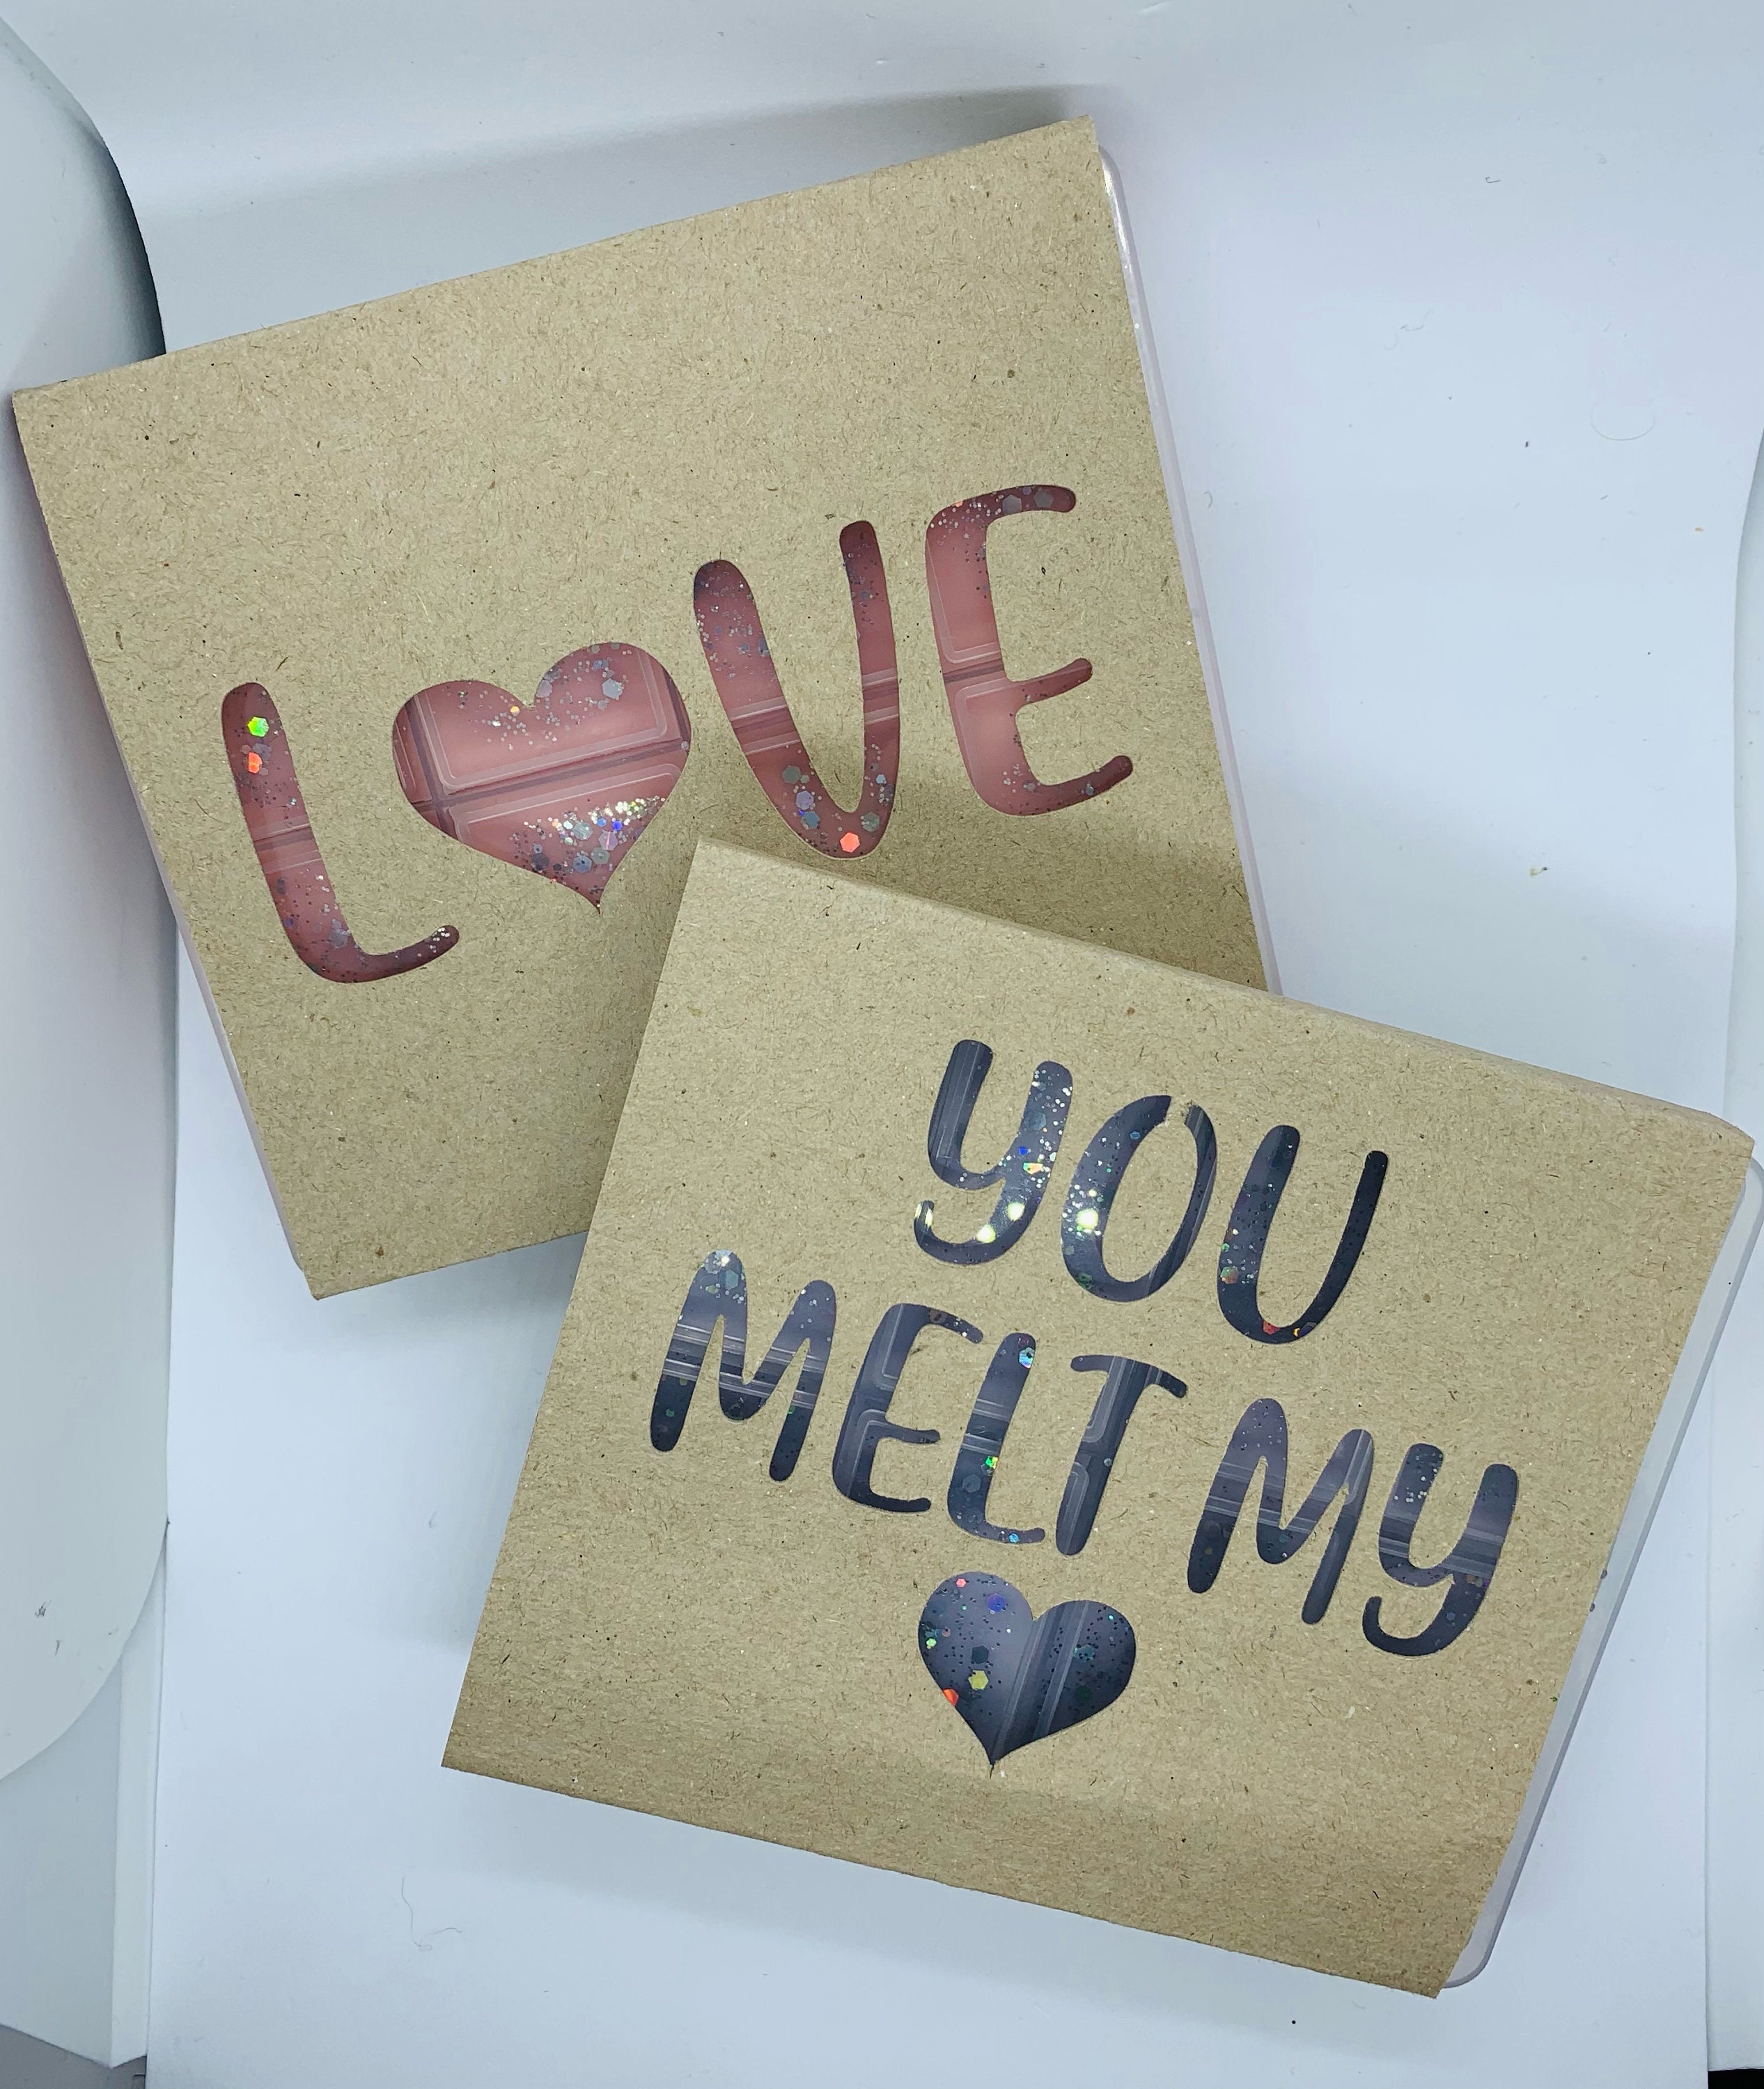 L♥VE
YOU
MELT MY
♥